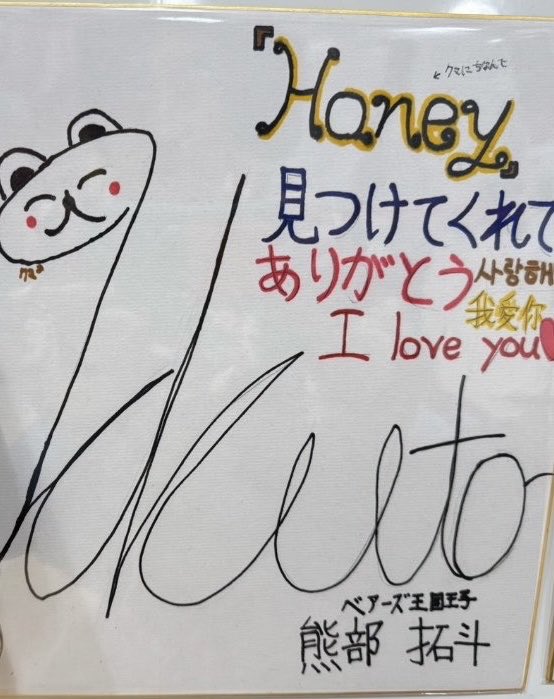 『Honey』
↙クマにちなんで
見つけてくれて
ありがとう 사랑해
我愛你
I love you
ベアーズ王国王子
熊部 拓斗